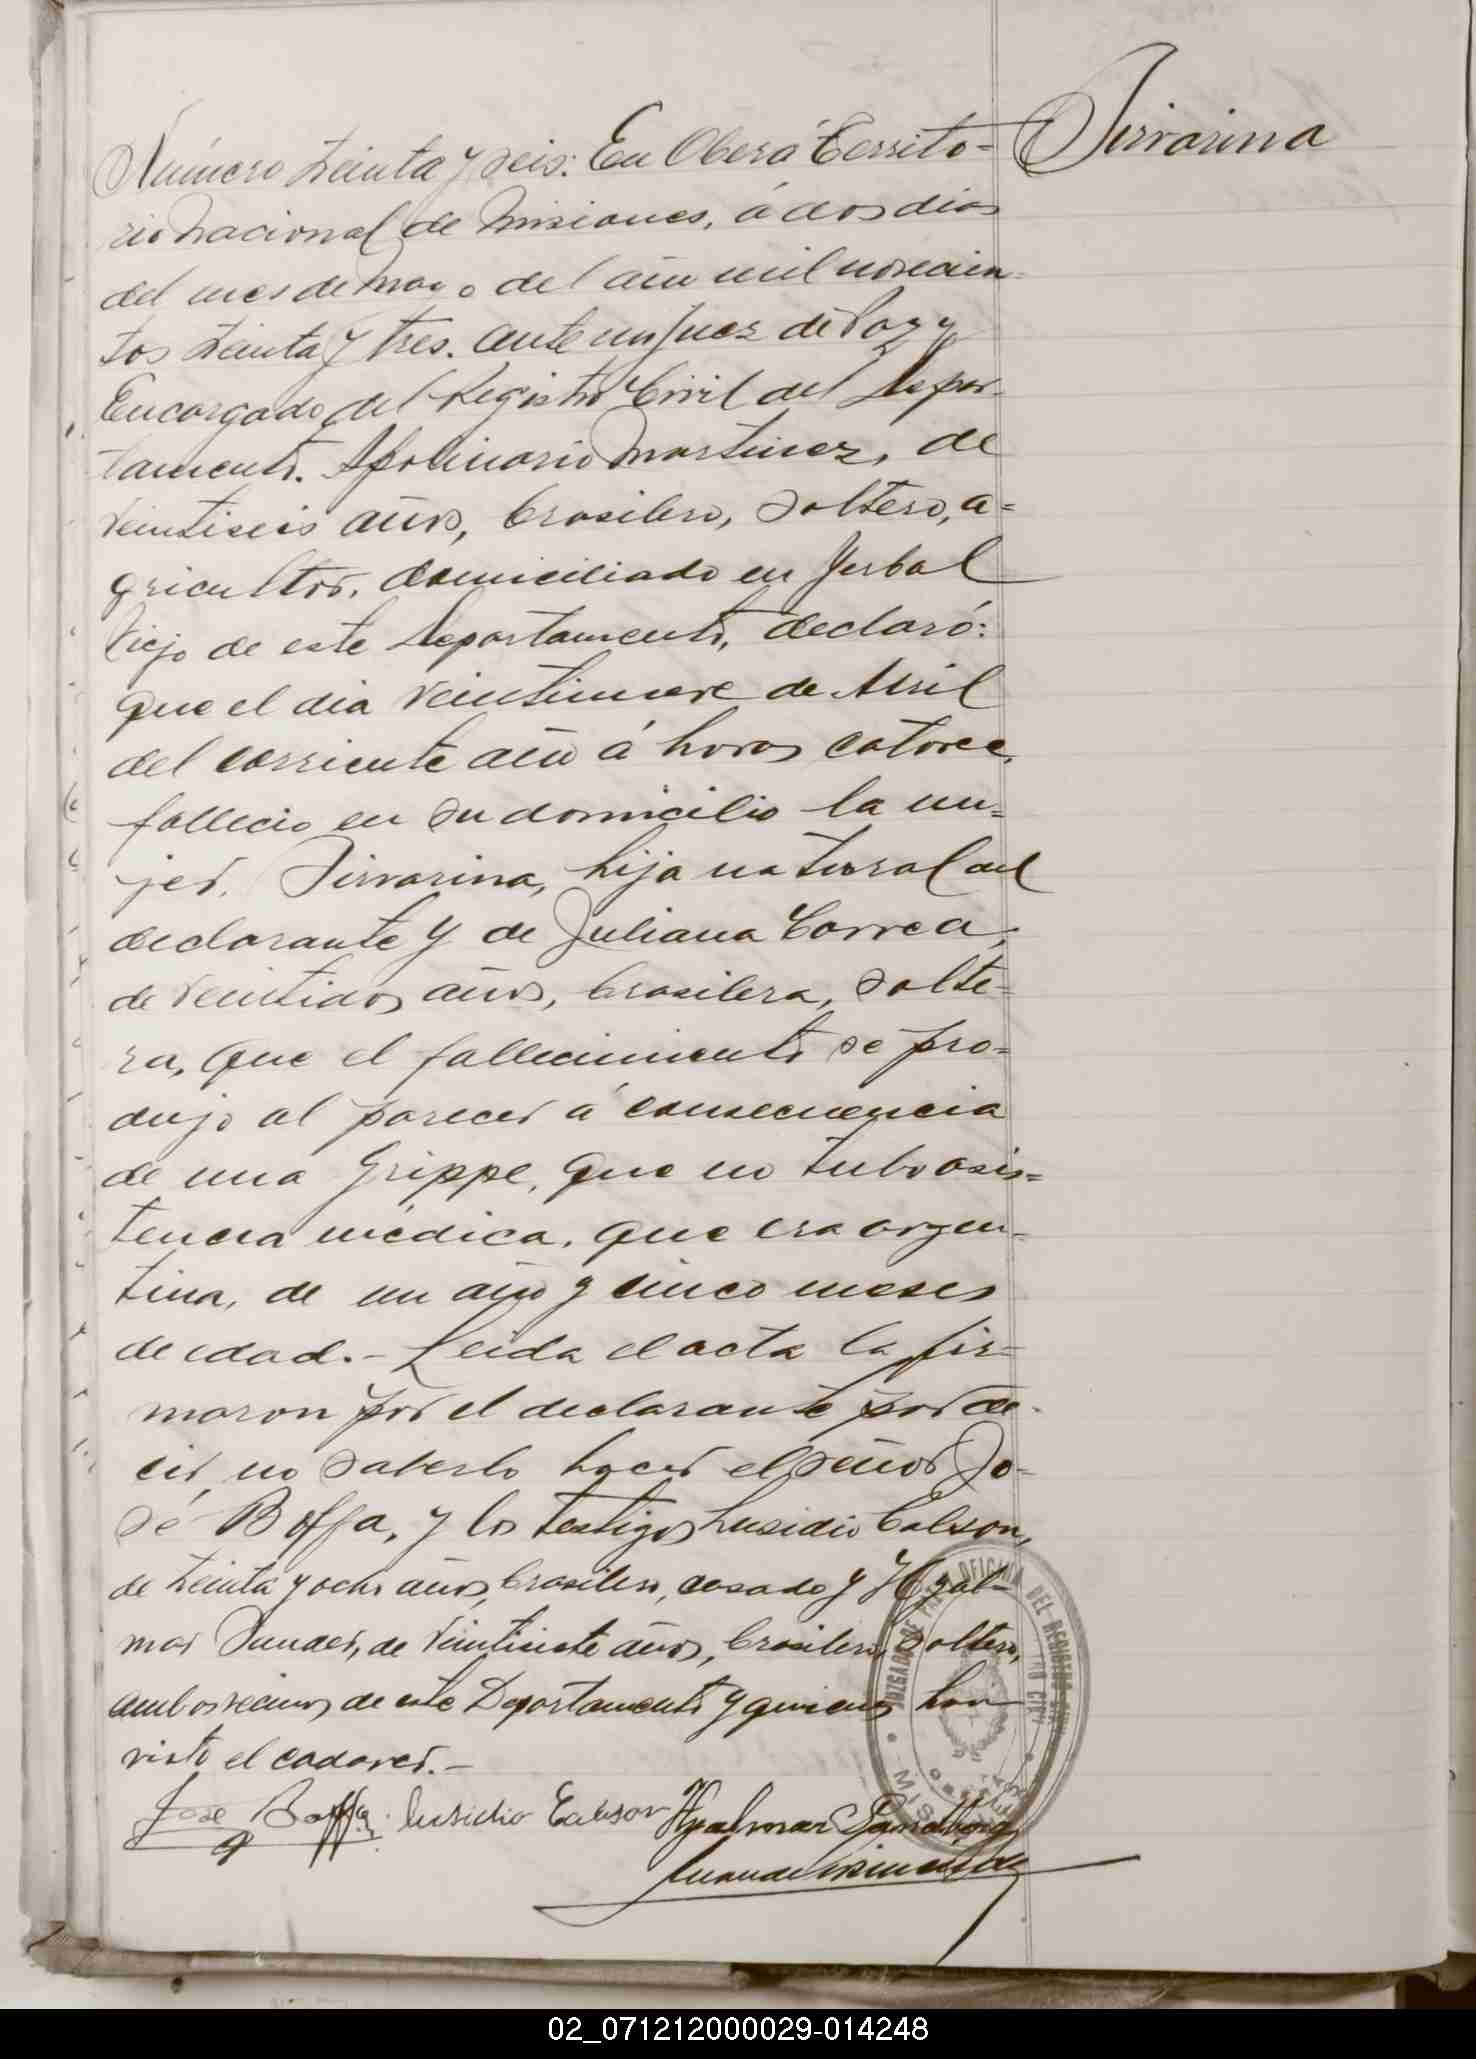 Número treinta y seis: En Oberá Territo-
rio Nacional de Misiones, á dos dias
del mes de Mayo del año mil novecien-
tos treinta y tres. ante mi Juez de Paz y
Encargado del Registro Civil del Depar-
tamento. Apolinario Martinez, de
veintiseis años, brasilero, soltero, a=
gricultor, domiciliado en Yerbal
Viejo de este Departamento, declaró:
que el dia veintinueve de Abril
del corriente año á horas catorce,
fallecio en su domicilio la mu=
jer, hija natural del
declarante y de Juliana Correa,
de veintidos años, brasilera, solte=
ra, que el fallecimiento se pro=
dujo al parecer á consecuencia
de una Grippe, que no tubo asis=
tencia médica, que era argen-
tina, de un año y cinco meses
de edad.- Leida el acta la fir=
maron por el declarante por de-
cir no saberlo hacer el señor Jo-
sé Boffa, y los testigos
de treinta y ocho años, brasilero, casado y Hjal-
mar de veintisiete años, brasilero, soltero,
ambos vecinos de este Departamento y quienes han
visto el cadaver.-
José Boffa Hjalmar
JUZGADO DE PAZ OFICINA DEL REGISTRO CIVIL
02_071212000029-014248